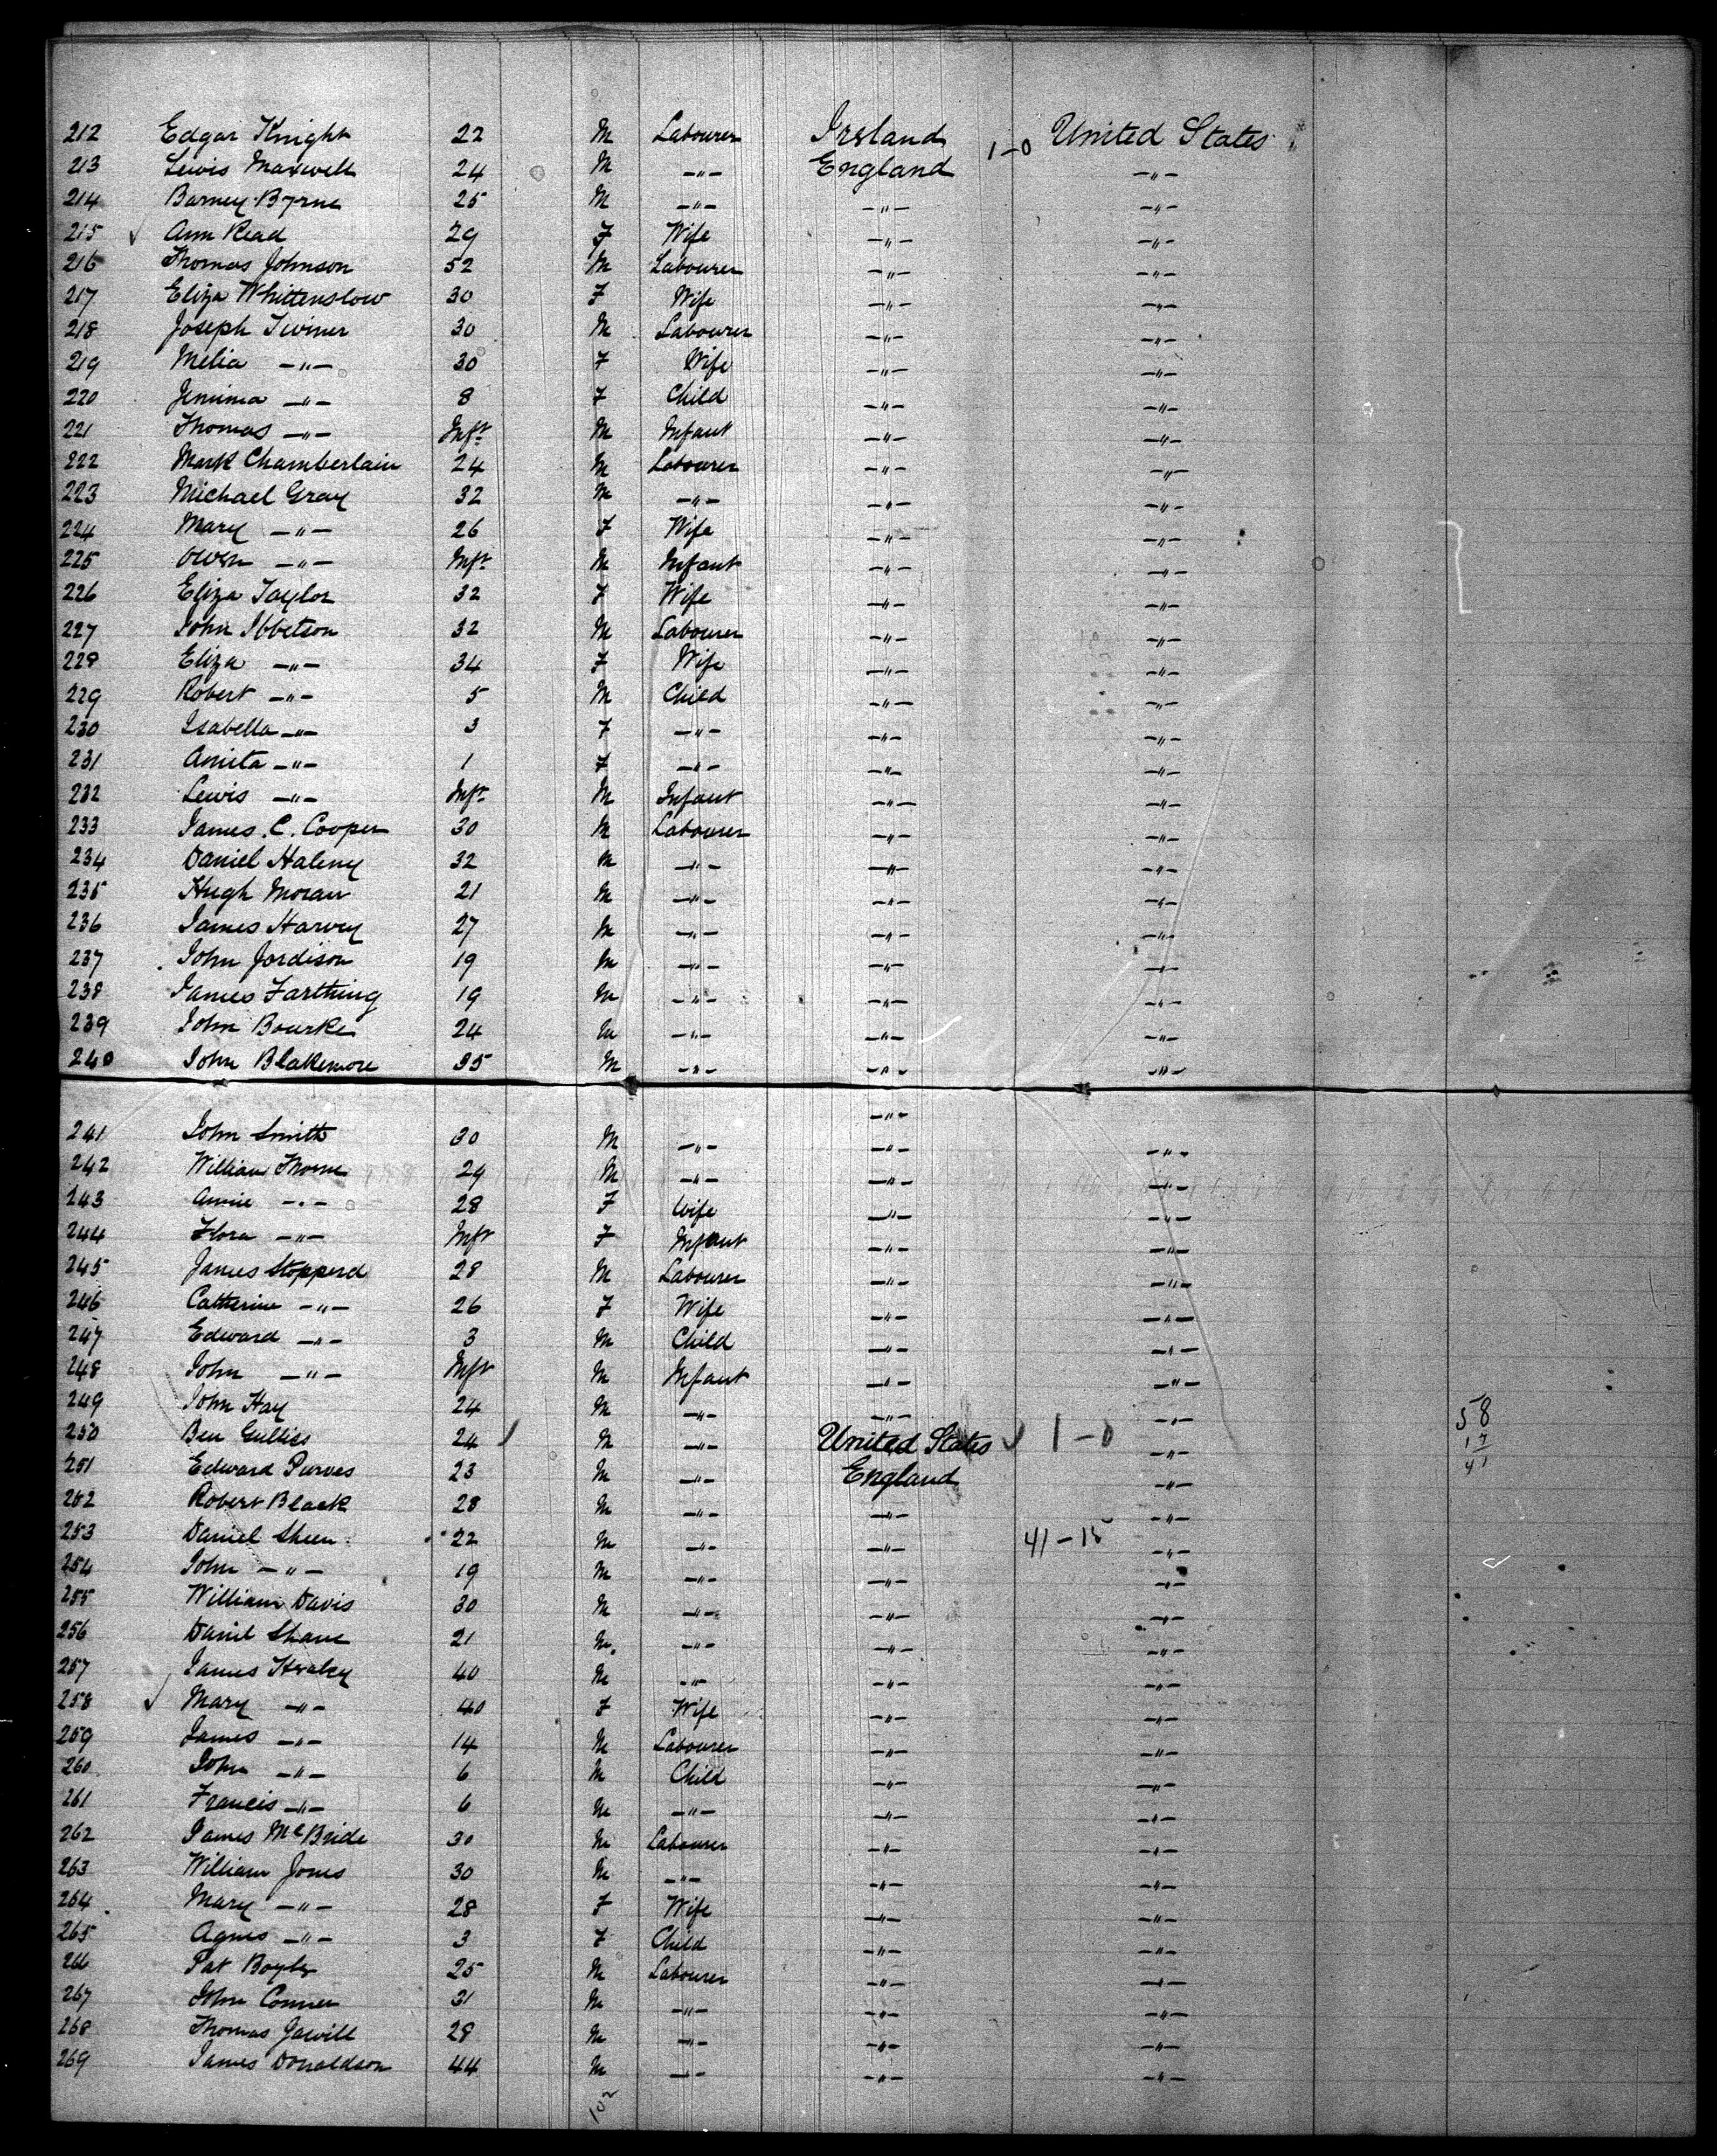 212 Edgar Knight 22 M Labourer Ireland 1-0 United States
213 Lewis Maxwell 24 M -"- England -"-
214 Barney Byrne 25 M -"- -"- -"-
215 ✓ Ann Read 29 F Wife -"- -"-
216 Thomas Johnson 52 M Labourer -"- -"-
217 Eliza Whittenslow 30 F Wife -"- -"-
218 Joseph 30 M Labourer -"- -"-
219 Melia -"- 30 F Wife -"- -"-
220 Jemima -"- 8 F Child -"- -"-
221 Thomas -"- Inft M Infant -"- -"-
222 Mark Chamberlain 24 M Labourer -"- -"-
223 Michael Gray 32 M -"- -"- -"-
224 Mary -"- 26 F Wife -"- -"-
225 Owen -"- Inft M Infant -"- -"-
226 Eliza Taylor 32 F Wife -"- -"-
227 John Ibbetson 32 M Labourer -"- -"-
228 Eliza -"- 34 F Wife -"- -"-
229 Robert -"- 5 M Child -"- -"-
230 Isabella -"- 3 F -"- -"- -"-
231 -"- 1 F -"- -"- -"-
232 Lewis -"- Inft M Infant -"- -"-
233 James C. Cooper 30 M Labourer -"- -"-
234 Daniel Haleny 32 M -"- -"- -"-
235 Hugh Moran 21 M -"- -"- -"-
236 James Harvey 27 M -"- -"- -"-
237 John Jordison 19 M -"- -"- -"-
238 James Farthing 19 M -"- -"- -"-
239 John Bourke 24 M -"- -"- -"-
240 John Blakemore 35 M -"- -"- -"-
-"-
241 John Smith 30 M -"- -"- -"-
242 William Thorne 29 M -"- -"- -"-
243 Annie -"- 28 F Wife -"- -"-
244 Flora -"- Inft F Infant -"- -"-
245 James Stopperd 28 M Labourer -"- -"-
246 Catherine -"- 26 F Wife -"- -"-
247 Edward -"- 3 M Child -"- -"-
248 John -"- Inft M Infant -"- -"-
249 John Hay 24 M -"- -"- -"- 58
250 Ben Gulliss 24 ✓ M -"- United States ✓ 1-0 -"- 17
251 Edward Purves 23 M -"- England -"- 41
252 Robert Black 28 M -"- -"- -"-
253 Daniel Sheen 22 M -"- -"- 41-15 -"-
254 John -"- 19 M -"- -"- -"-
255 William Davis 30 M -"- -"- -"-
256 Daniel Shane 21 M -"- -"- -"-
257 James Healey 40 M -"- -"- -"-
258 ✓ Mary -"- 40 F Wife -"- -"-
259 James -"- 14 M Labourer -"- -"-
260 John -"- 6 M Child -"- -"-
261 Francis -"- 6 M -"- -"- -"-
262 James McBride 30 M Labourer -"- -"-
263 William Jones 30 M -"- -"- -"-
264 Mary -"- 28 F Wife -"- -"-
265 Agnes -"- 3 F Child -"- -"-
266 Pat Boyle 25 M Labourer -"- -"-
267 John Conner 31 M -"- -"- -"-
268 Thomas Jowill 28 M -"- -"- -"-
269 James Donaldson 44 M -"- -"- -"-